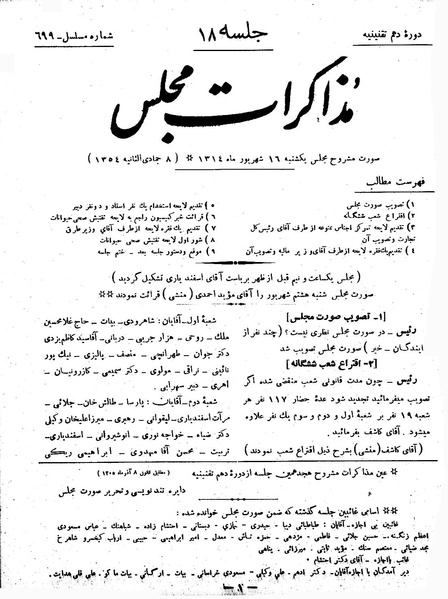 دورهٔ دهم تقنینیه
جلسه ۱۸
شماره مسلسل - ۶۹۹
مذاکرات مجلس
صورت مشروح مجلس یکشنبه ۱۶ شهریور ماه ۱۳۱۴ * (۸ جمادی الثانیه ۱۳۵۴)
فهرست مطالب
۱) تصویب صورت مجلس
۲) اقتراع شعب ششگانه
۳) تقدیم لایحه تمرکز اجناس ممنوعه از طرف آقای رئیس کل
تجارت و تصویب آن
۴) تقدیم یک فقره لایحه از طرف آقای وزیر مالیه و تصویب آن
۵) تقدیم لایحه استخدام یک نفر استاد و دو نفر دبیر
۶) قرائت خبر کمیسیون راجع به لایحه تفتیش صحی حیوانات
۷) تقدیم یک فقره لایحه از طرف آقای وزیر طرق
۸) شور اول لایحه تفتیش صحی حیوانات
۹) موقع و دستور جلسه بعد - ختم جلسه
(مجلس یکساعت و نیم قبل از ظهر بریاست آقای اسفندیاری تشکیل گردید)
صورت مجلس شنبه هشتم شهریور را آقای مؤید احمدی (منشی) قرائت نمودند
[۱- تصویب صورت مجلس]
رئیس - در صورت مجلس نظری نیست؟ (چند نفر از
نمایندگان - خیر) صورت مجلس تصویب شد
[۲- اقتراع شعب ششگانه]
رئیس - چون مدت قانونی شعب منقضی شده اگر
تصویب میفرمائید تجدید شود عدهٔ حضار ۱۱۷ نفر هر
شعبه ۱۹ نفر بر شعبهٔ اول و دوم و سوم یک نفر علاوه
میشود. آقای کاشف بفرمائید.
(آقای کاشف (منشی) بشرح ذیل اقتراع شعب نمودند)
شعبهٔ اول - آقایان: شاهرودی - بیات - حاج غلامحسین
ملک - روحی - هزار جریبی - دربانی - آقا سید کاظم یزدی
دکتر جوان - طهرانچی - منصف - پالیزی - نیک پور
نائینی - نراقی - مولوی - دکتر سمیعی - کازرونیان -
اهری - دبیر سهرابی.
شعبهٔ دوم - آقایان: پارسا - طالش خان - جلائی -
مرآت اسفندیاری - لیقوانی - رهبری - میرزا علیخان وکیل
دکتر ضیاء - خواجه نوری - انوشیروانی - اسفندیاری -
تربیت - محسن آقا مهدوی - ابراهیمی ریگی
* عین مذاکرات مشروح هجدهمین جلسه از دورهٔ دهم تقنینیه (مطابق قانون ۸ آذر ماه ۱۳۰۵)
دایره تند نویسی و تحریر صورت مجلس
** اسامی غائبین جلسه گذشته که ضمن صورت مجلس خوانده شده:
غائبین بی اجازه - آقایان: طباطبائی دیبا - حیدری - نمازی - دبستانی - احتشام زاده - شباهنک - عباس مسعودی
اعظم زنگنه - حسین جلائی - فاطمی - مژدهی - حمزه تاش - معدل - امیر ابراهیمی - حبیبی - ارباب کیخسرو شاهرخ
مجد ضیائی - معتصم سنک - مؤید ثابتی - میرزائی - پناهی
غائب بااجازه - آقای دکتر احتشام
دیر آمدگان با اجازه آقایان - دکتر ادهم - علی وکیلی - مسعودی خراسانی - بیات - ارگانی - بیات ماکو - علی قلی هدایت.
-۱-